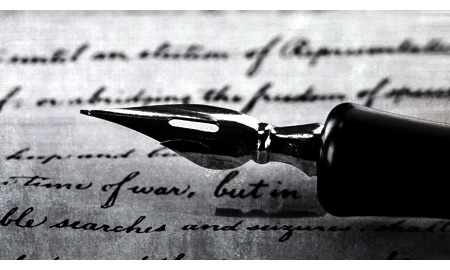 until an election of Representatives
or abridging the freedom of speech
keep and
time of war, but in
ble searches and seizures, shall